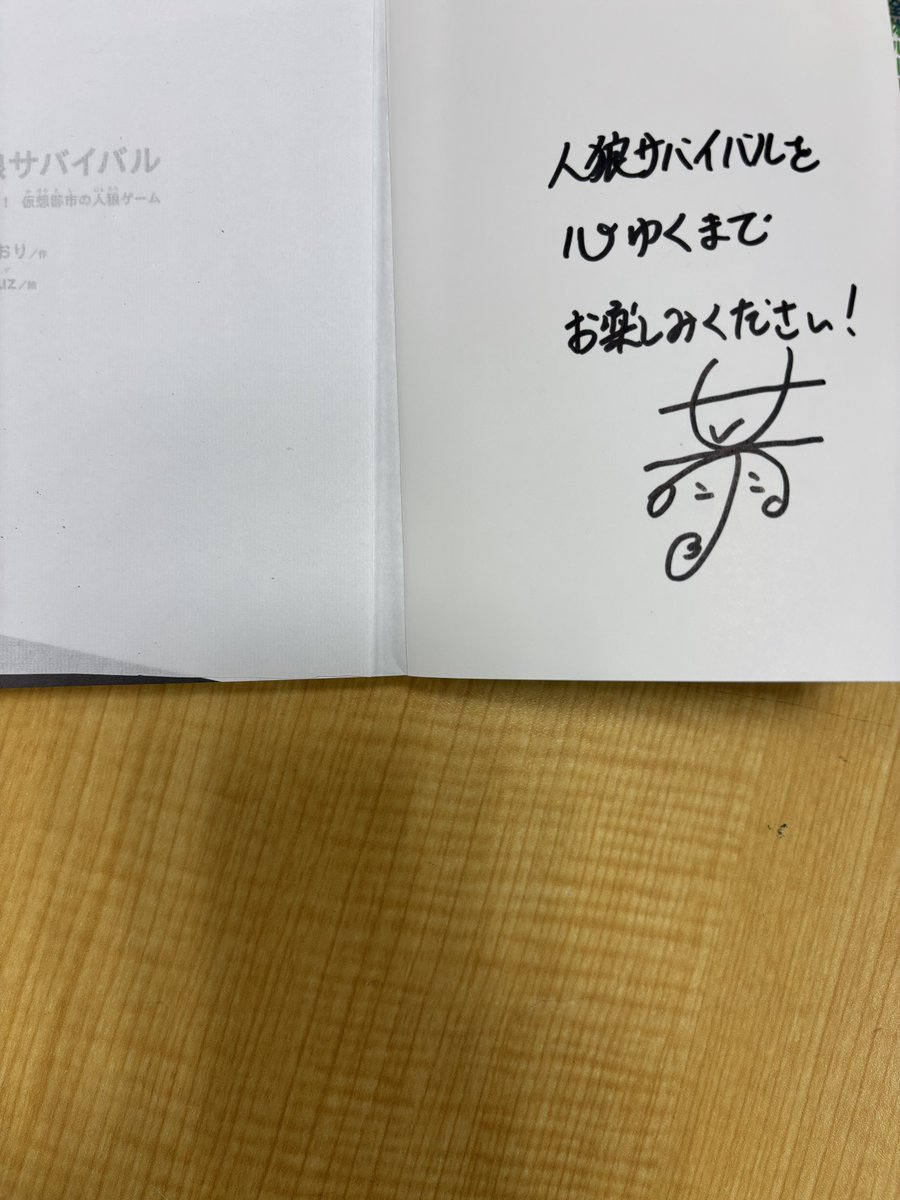 狼サバイバル
！ 仮想都市の人狼ゲーム
おり／作
uz／絵
人狼サバイバルを
心ゆくまで
お楽しみください！